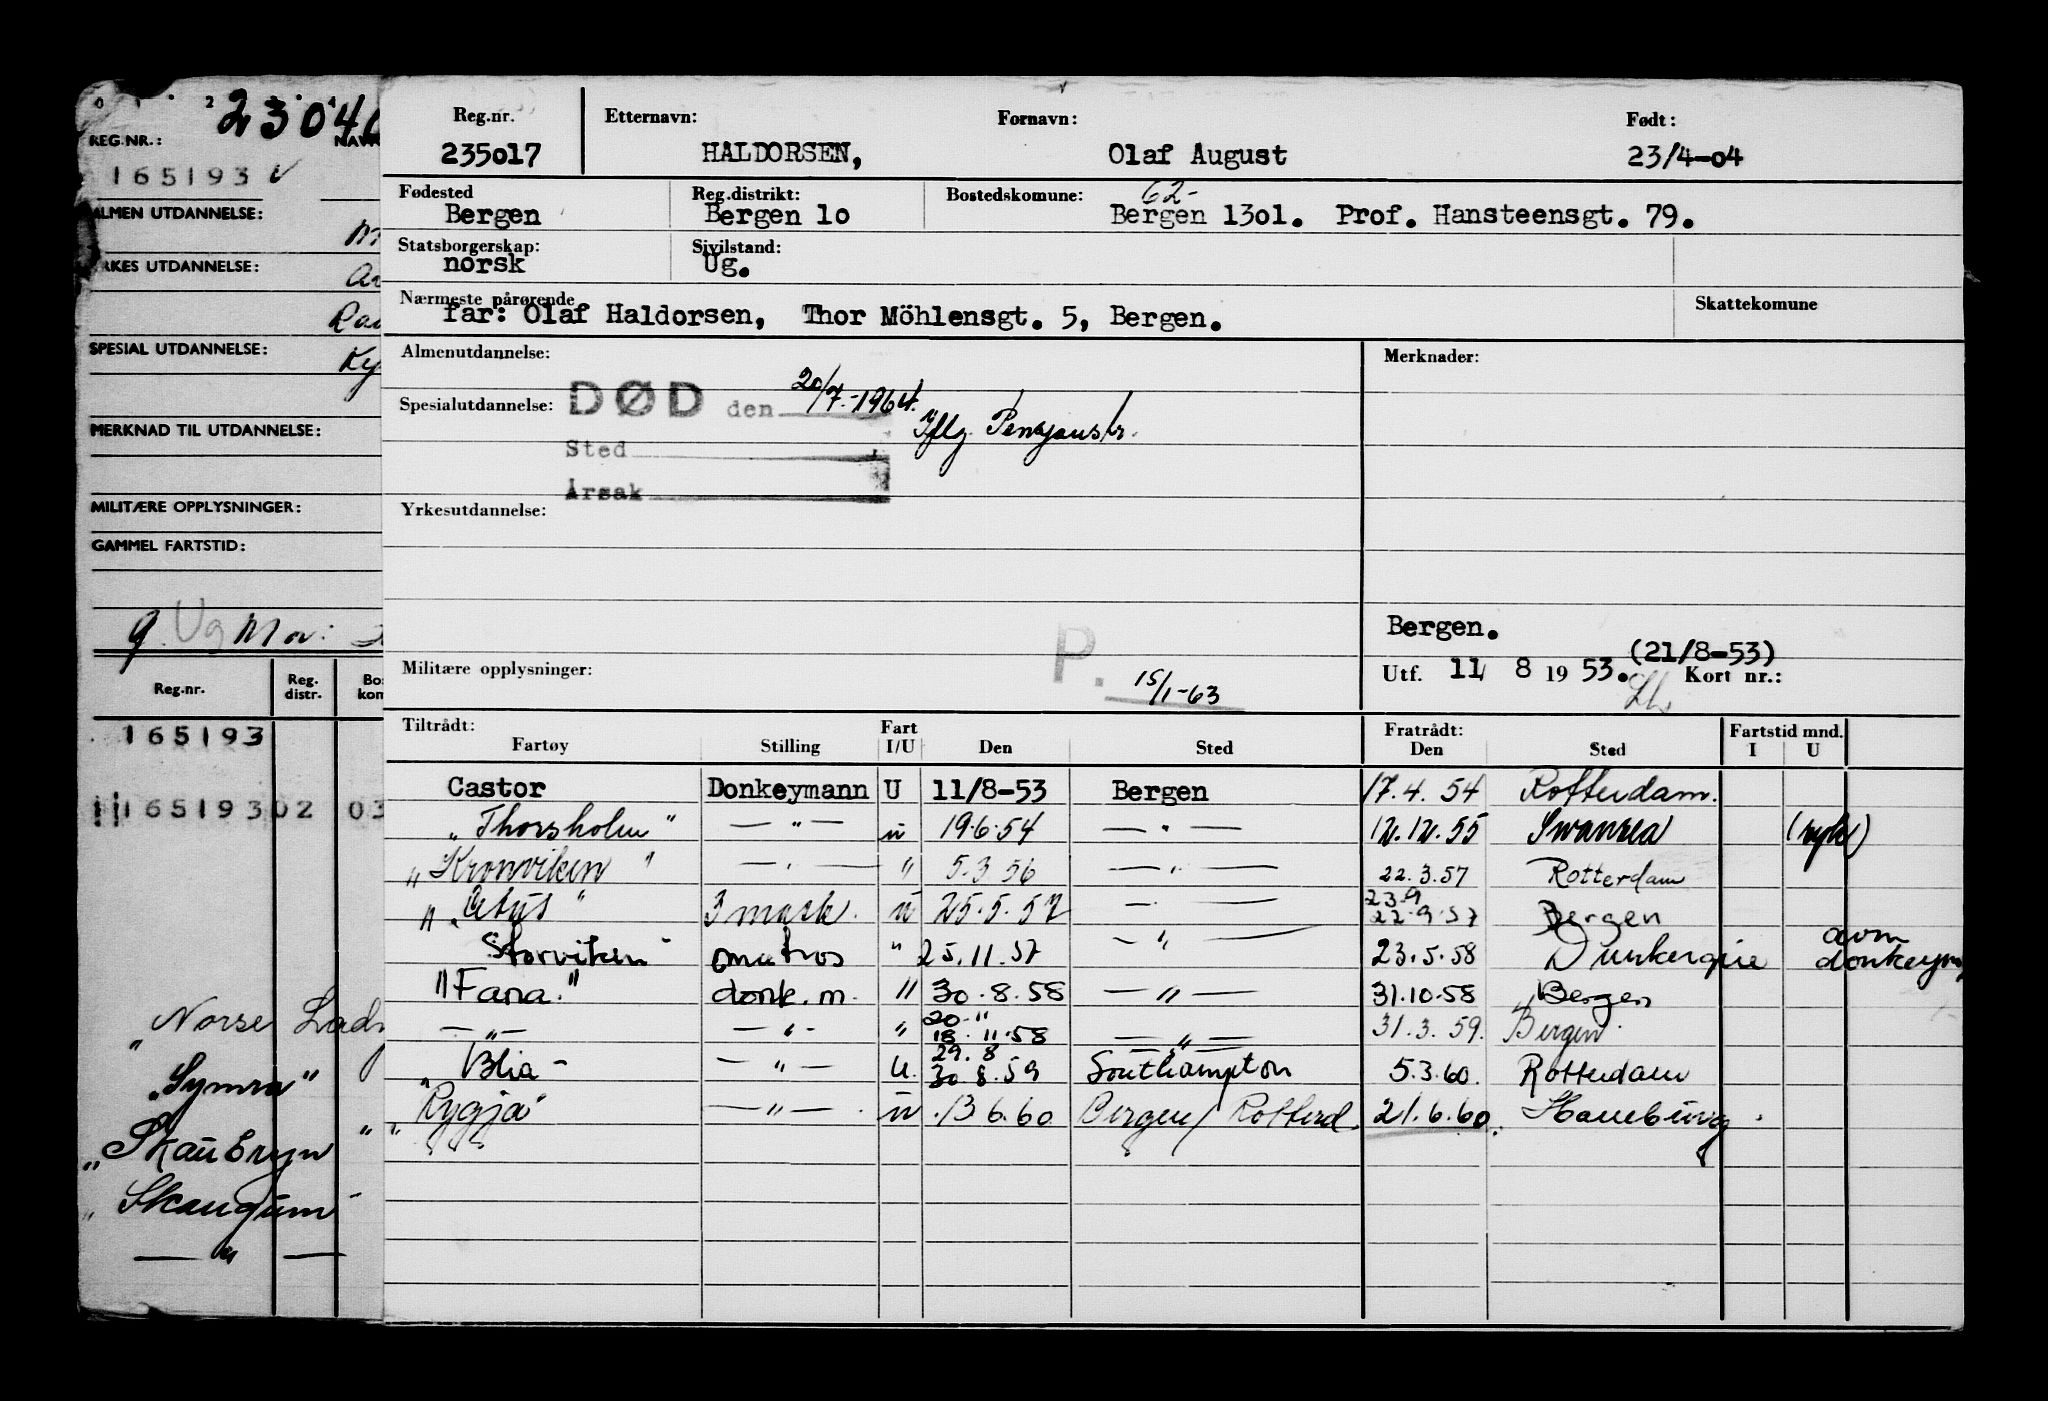 23040
REG.NR.:
165193 V
ALMEN UTDANNELSE:
YRKES UTDANNELSE:
SPESIAL UTDANNELSE:
MERKNAD TIL UTDANNELSE:
MILITÆRE OPPLYSNINGER:
GAMMEL FARTSTID:
g. Ug Mor:
Reg.nr. Reg. distr.
165193
165193 02 03
"Norse Lady
"Symra"
"Skaubryn"
"Skaugum"
— " —
Reg.nr. Etternavn: Fornavn: Født:
235o17 HALDORSEN, Olaf August 23/4-o4
Fødested Reg.distrikt: Bostedskomune: 62-
Bergen Bergen 1o Bergen 13o1. Prof. Hansteensgt. 79.
Statsborgerskap: Sivilstand:
norsk Ug.
Nærmeste pårørende Skattekomune
far: Olaf Haldorsen, Thor Möhlensgt. 5, Bergen.
Almenutdannelse: Merknader:
Spesialutdannelse: DØD den 20/7.-1964. Iflg. Pensjonstr.
Sted
Årsak
Yrkesutdannelse:
Bergen.
Militære opplysninger: P. 15/1-63
Utf. 11/ 8 19 53. (21/8-53) Kort nr.:
Tiltrådt: Fart Fratrådt: Fartstid mnd.
Fartøy Stilling I/U Den Sted Den Sted I U
Castor Donkeymann U 11/8-53 Bergen 17.4.54 Rotterdam.
"Thorsholm" — " — u 19.6.54 — " — 12.12.55 Swansea (syk)
"Kronviken" — " — " 5.3.56 — " — 22.3.57 Rotterdam
"Atus" 3 mask. u 25.5.57 — " — 23.9 22.9.57 Bergen
Storviken omatros " 25.11.57 — " — 23.5.58 Dunkerque avm donkeym
"Fana." donk.m. " 30.8.58 — " — 31.10.58 Bergen
— " — — " — " 20-11 18.11.58 — " — 31.3.59. Bergen.
"Blia — — " — u. 29.8 30.8.59 Southampton 5.3.60. Rotterdam
"Rygja" — " — u 13.6.60 Bergen/Rotterd. 21.6.60. Hamburg.